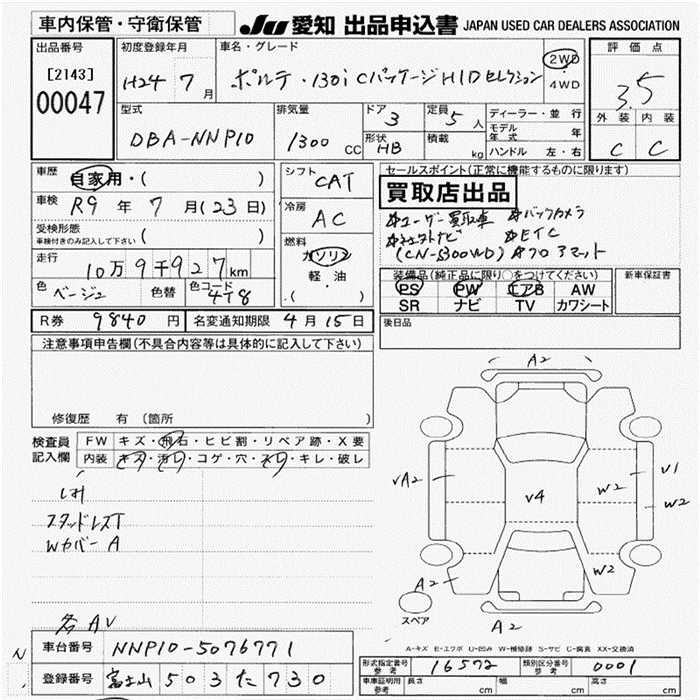 車内保管・守衛保管 JU 愛知 出品申込書 JAPAN USED CAR DEALERS ASSOCIATION
出品番号 初度登録年月 車名・グレード 評価点
[2143] 00047 H24 7月 ポルテ・130i CパッケージHIDセレクション 2WD・4WD 3.5
外装 内装
C C
型式 排気量 ドア 定員 ディーラー・並行
DBA-NNP10 1300 CC 3 5人 モデル年式 年
形状 HB 積載 kg ハンドル 左・右
車歴 自家用・( )
シフト CAT
セールスポイント(正常に機能するものに限ります)
買取店出品
車検 R9年 7月(23日)
冷房 AC
*ユーザー買取車 *バックカメラ
受検形態 車検付きのみ記入して下さい ( )
*ETC
(CN-S300WD) *フロアマット
走行 10万9千927km
燃料 ガソリン 軽・油 ・( )
装備品(純正品に限り○をつけてください) 新車保証書
PS PW エアB AW
SR ナビ TV カワシート
色 ベージュ 色替 色コード 4T8
R券 9840円 名変通知期限 4月15日
後日品
注意事項申告欄(不具合内容等は具体的に記入して下さい)
修復歴 有 (箇所 )
検査員記入欄 FW キズ・飛石・ヒビ割・リペア跡・X要
内装 キズ・汚レ・コゲ・穴・スレ・キレ・破レ
スタッドレスT
Wカバー A
各AV
A2
VA2
V4
W2
V1
W2
W2
A2
スペア
A2
A-キズ E-エクボ U-凹み W-補修跡 S-サビ C-腐食 XX-交換済
N 車台番号 NNP10-5076771
形式指定番号 参考 16572 類別区分番号 参考 0001
登録番号 富士山 503 た 730
車車証明用 参考 長さ cm 幅 cm 高さ cm